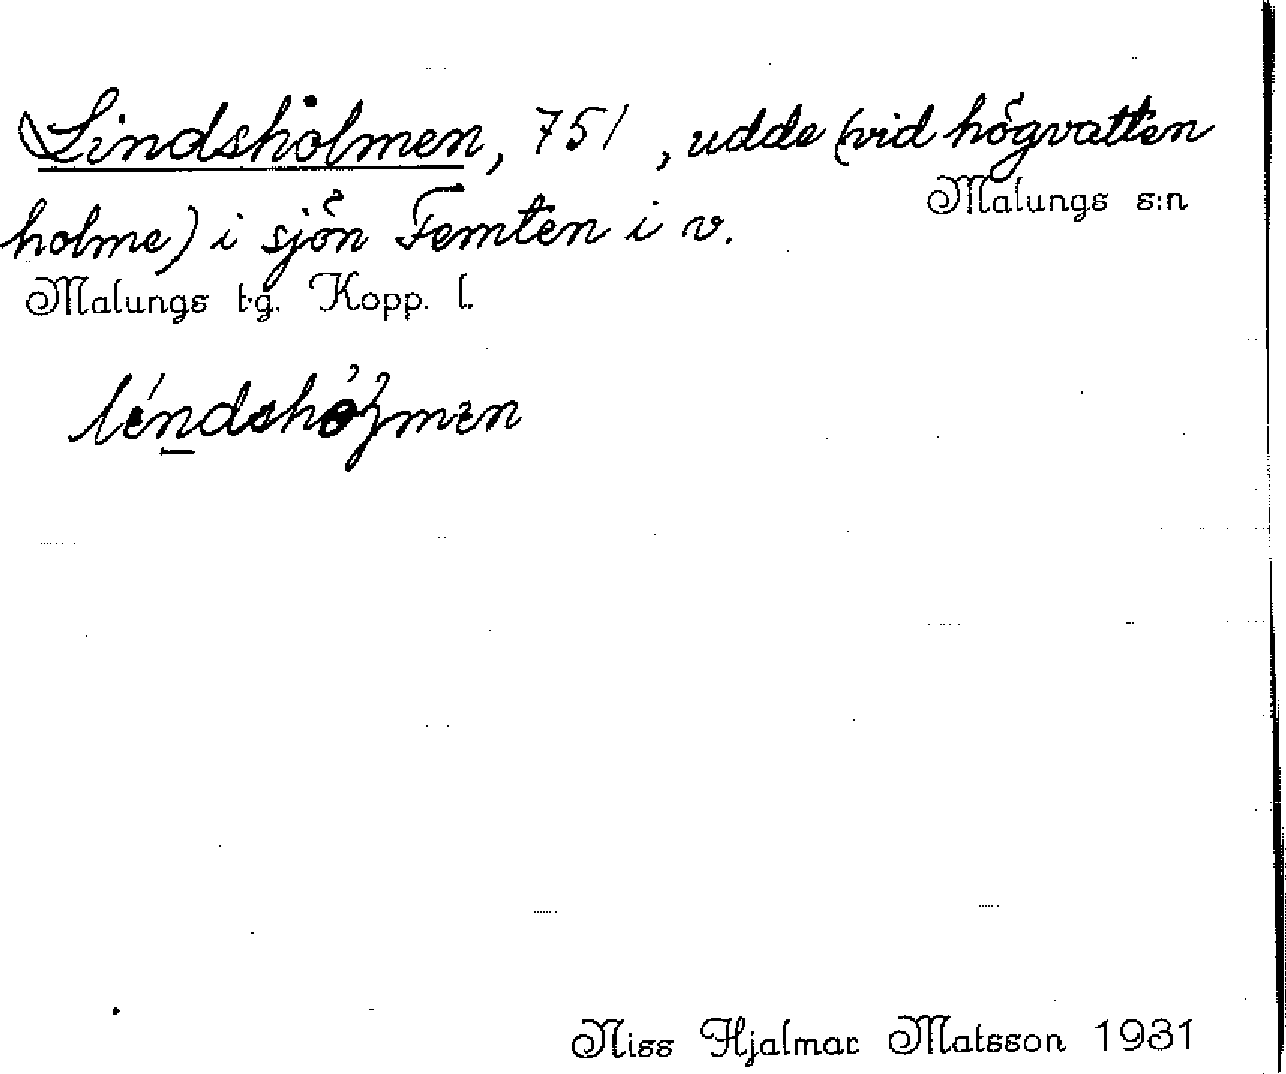 Lindsholmen, 751, udde (vid högvatten
Malungs s:n
holme) i sjön Femten i v.
Malungs t.g. Kopp. l.
Niss Hjalmar Matsson 1931